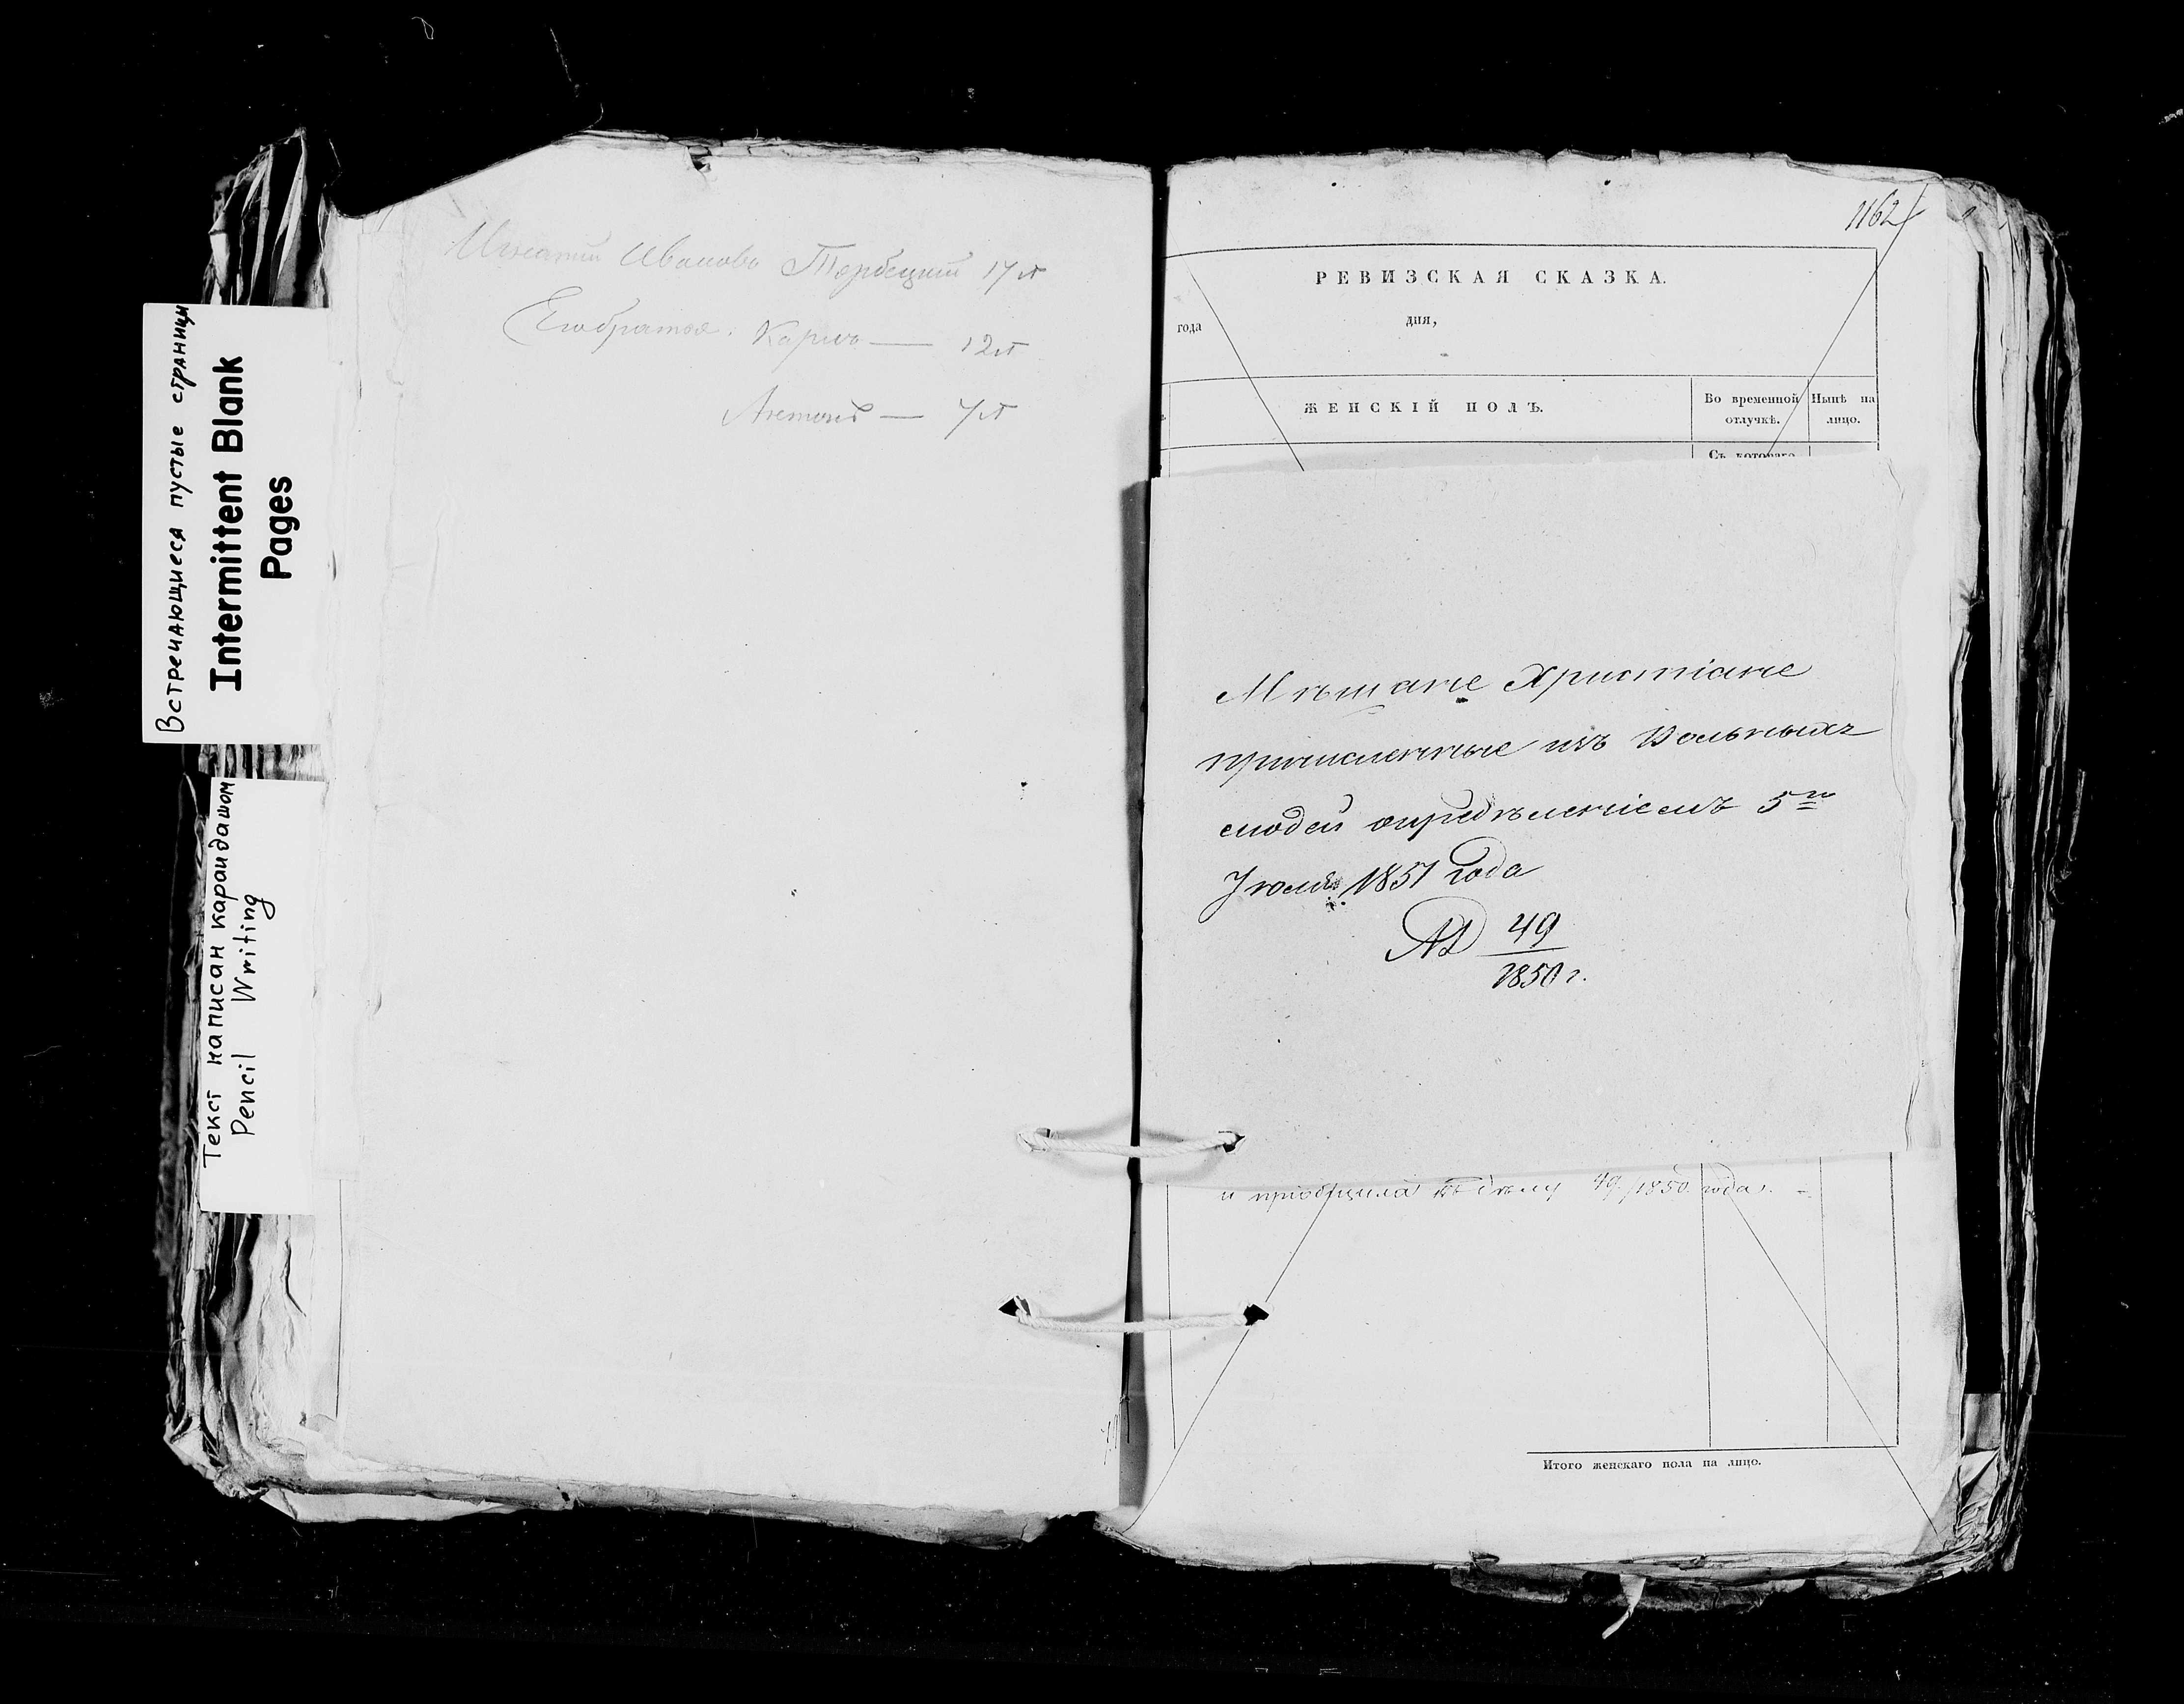 Встречающиеся пустые страницы
Intermittent Blank
Pages
Текст написан карандашом
Pencil Writing
Игнатій Ивановъ Тербецкій 17 л
Его братья: Карлъ — 12 л
Антонъ — 7 л
1162
РЕВИЗСКАЯ СКАЗКА.
года дня,
ЖЕНСКІЙ ПОЛЪ.
Во временной отлучкѣ.
Нынѣ на лицо.
Съ котораго
Мѣщане Христіане
причисленные изъ Вольныхъ
людей опредѣленіемъ 5го
Іюля 1851 года
№ 49
1850 г.
и пріобщила къ дѣлу 49/1850 года. —
Итого женскаго пола на лицо.